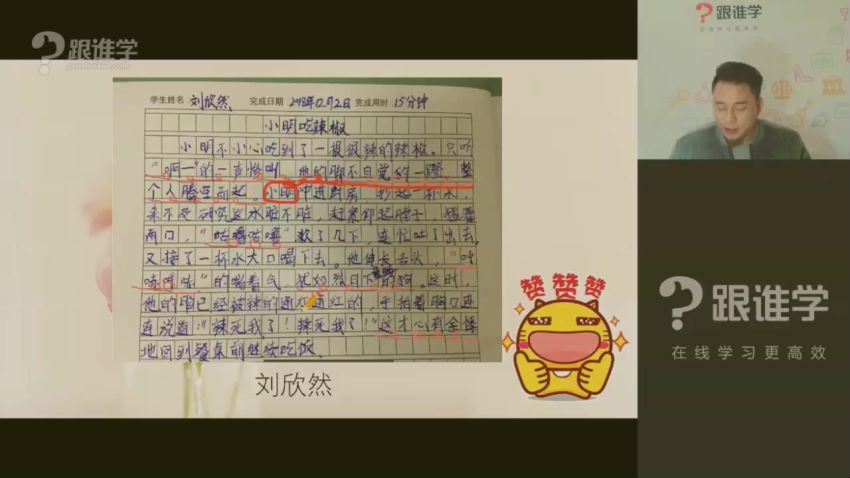 跟谁学
genshuixue.com
学生姓名 刘欣然 完成日期 2018年12月2日 完成用时 15分钟
小明吃辣椒
小明不小心吃到了一根很辣的辣椒。只听
“啊一”的一声惨叫，他的脚不自觉的一蹬，整
个人腾空而起。小明冲进厨房，抄起一杯水，
来不及研究这水脏不脏，赶紧仰起脖子，猛灌
两口，“咕噜咕噜”漱了几下，连忙吐了出去，
又接了一杯水大口喝下去。他伸长舌头，“呼
哧哧哧”的喘着气，犹如烈日下的狗。这时，
他的脸已经被辣的通红通红的，手拍着胸口连
连说道：“辣死我了！辣死我了！”这才心有余悸
地回到餐桌前继续吃饭。
刘欣然
赞赞赞
跟谁学
跟谁学
在线学习更高效